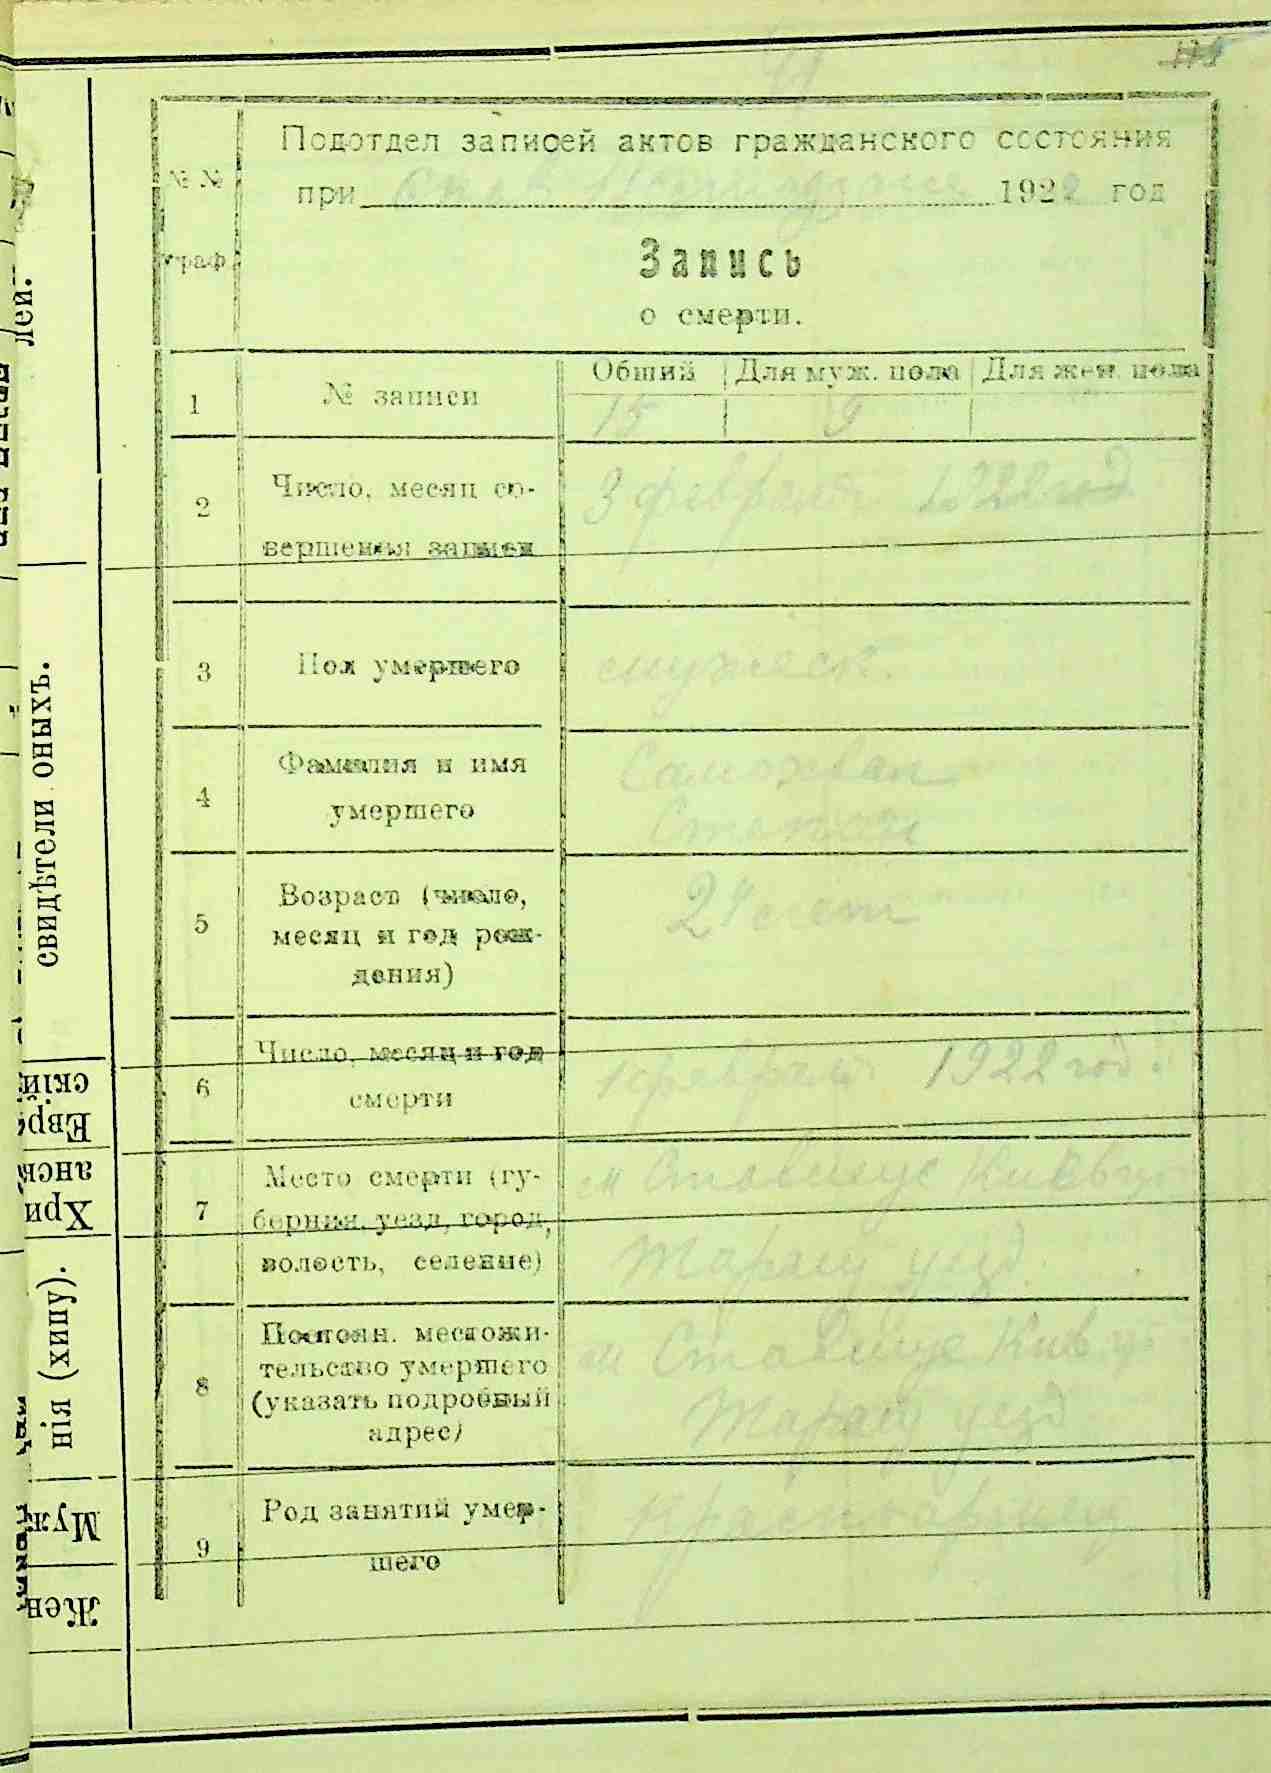 Подотдел записей актов гражданского состояния
при 1922 год
№ №
граф
Запись
о смерти.
1
№ записи
Общий Для муж. пола Для жен. пола
15 9
2
Число, месяц со-
вершения записи
3 февраля 1922 год
3
Пол умершего
мужеск.
4
Фамилия и имя
умершего
Самохвал
Степан
5
Возраст (число,
месяц и год рож-
дения)
24 лет
6
Число, месяц и год
смерти
1 февраля 1922 год.
7
Место смерти (гу-
берния, уезд, город,
волость, селение)
м Ставище Киевгуб
Таращ уезд.
8
Постоян. местожи-
тельство умершего
(указать подробный
адрес)
м Ставище Киев г
Таращ уезд
9
Род занятий умер-
шего
лей.
свидѣтели оныхъ.
Евре
скій
Хри
анск
нія (хипу).
Муж
Жен